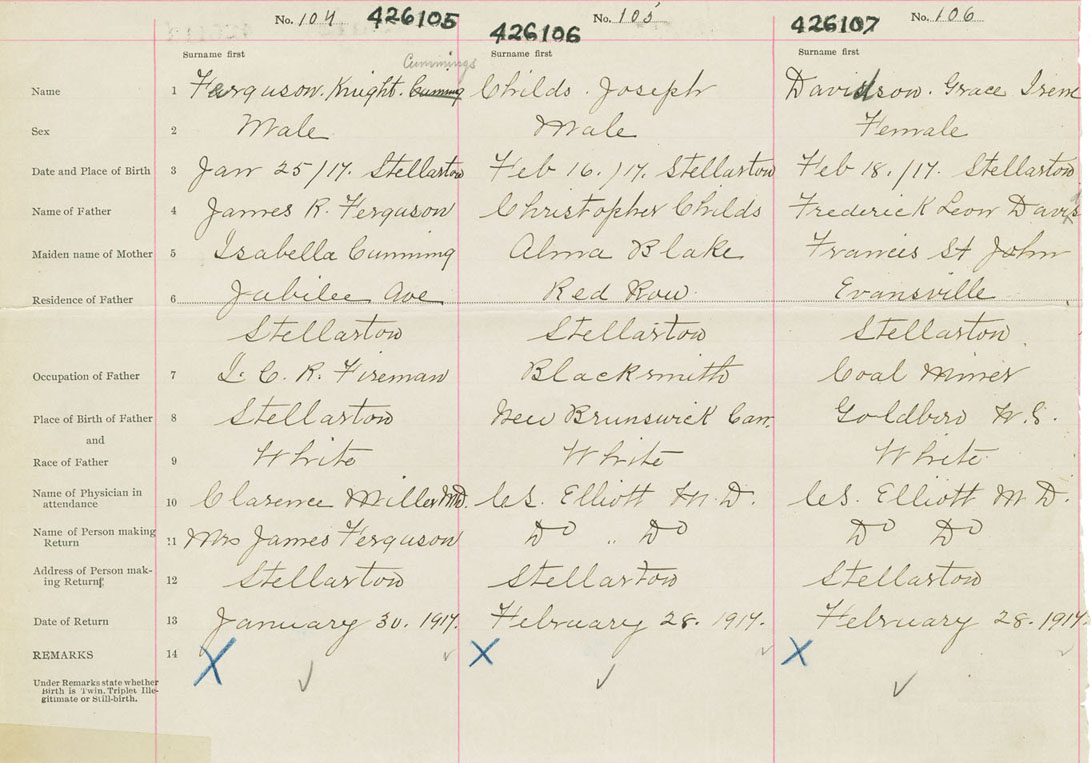 No. 104 426105 No. 105 426106 No. 106 426107
Surname first Surname first Surname first
Cummings
Name 1 Ferguson. Knight. Cuming Childs. Joseph Davidson. Grace Irene
Sex 2 Male Male Female
Date and Place of Birth 3 Jan 25/17. Stellarton Feb 16./17 Stellarton Feb 18./17. Stellarton
Name of Father 4 James R. Ferguson Christopher Childs Frederick Leon
Maiden name of Mother 5 Isabella Cumming Alma Blake Francis St John
Residence of Father 6 Jubilee Ave Red Row Evansville
Stellarton Stellarton Stellarton
Occupation of Father 7 I. C. R. Fireman Blacksmith Coal Miner
Place of Birth of Father 8 Stellarton New Brunswick Can. Goldboro N.S.
and
Race of Father 9 White White White
Name of Physician in
attendance 10 Clarence Miller MD. Elliott M.D. Elliott M.D.
Name of Person making
Return 11 Mrs James Ferguson Do " Do Do Do
Address of Person mak-
ing Return 12 Stellarton Stellarton Stellarton
Date of Return 13 January 30. 1917. February 28. 1917. February 28. 1917
REMARKS 14 X X X
Under Remarks state whether
Birth is Twin. Triplet Ille-
gitimate or Still-birth.